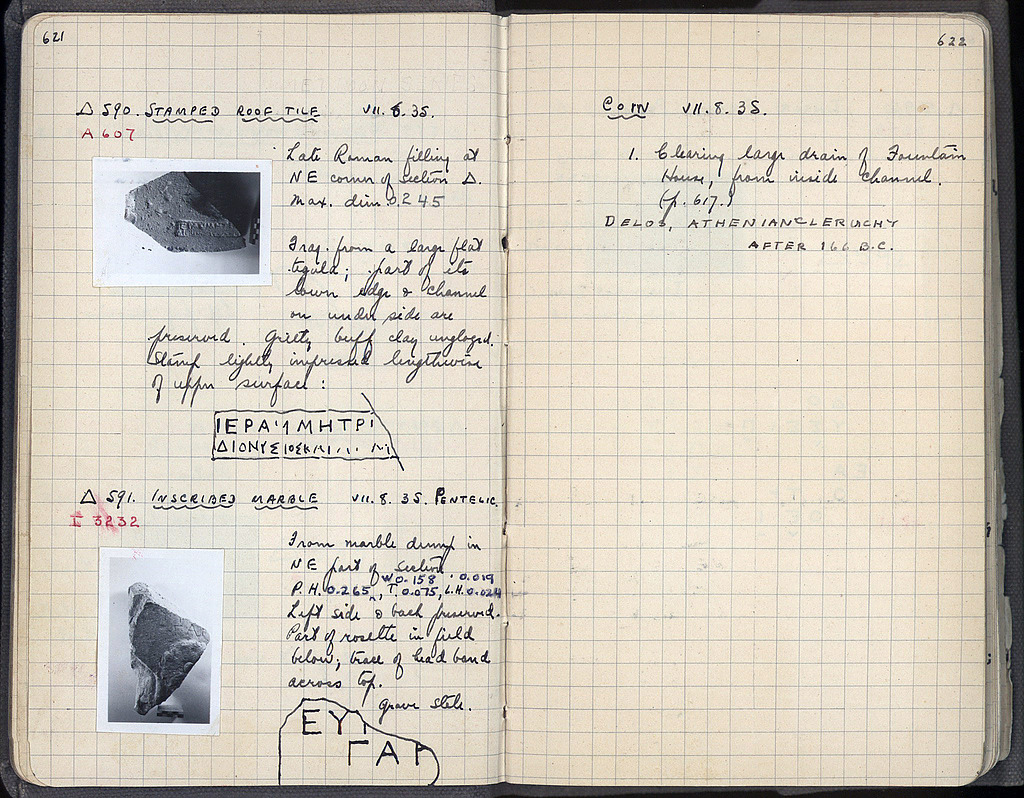 621
Δ 590. STAMPED ROOF TILE VII. 8. 35.
A 607
Late Roman filling at
NE corner of Section Δ.
Max. dim. 0.245
Frag. from a large flat
tegula; part of its
lower edge & channel
on under side are
preserved. Gritty buff clay unglazed.
Stamp lightly impressed lengthwise
of upper surface:
ΙΕΡΑ ΜΗΤΡΙ
ΔΙΟΝΥΣΙΟΣΚ
Δ 591. INSCRIBED MARBLE VII. 8. 35. PENTELIC.
I 3232
From marble dump in
NE part of Section
W 0.158 0.019
P.H. 0.265, T. 0.075, L.H. 0.024
Left side & back preserved.
Part of rosette in field
below; trace of head band
across top.
Grave stele.
ΕΥ
ΓΑ
622
COIN VII. 8. 35.
1. Clearing large drain of Fountain
House, from inside channel.
(p. 617.)
DELOS, ATHENIAN CLERUCHY
AFTER 166 B.C.